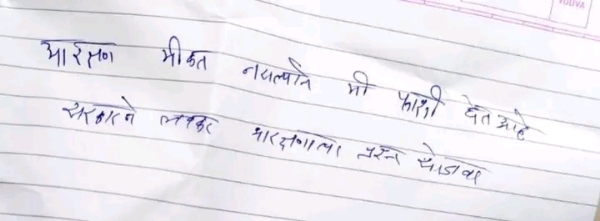 YUUVA
आरक्षण मीळत नसल्याने मी फाशी घेत आहे
सरकारने लवकर आरक्षणाचा प्रश्न सोडवा